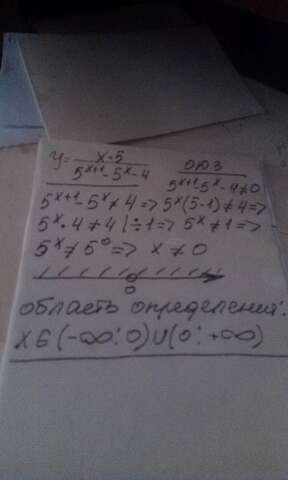 y = x-5 / 5^(x+1) - 5^x - 4   ОДЗ
5^(x+1) - 5^x - 4 ≠ 0
5^(x+1) - 5^x ≠ 4 => 5^x(5-1) ≠ 4 =>
5^x · 4 ≠ 4 | ÷ 1 => 5^x ≠ 1 =>
5^x ≠ 5^0 => x ≠ 0
0
область определений:
x∈(-∞; 0)∪(0; +∞)